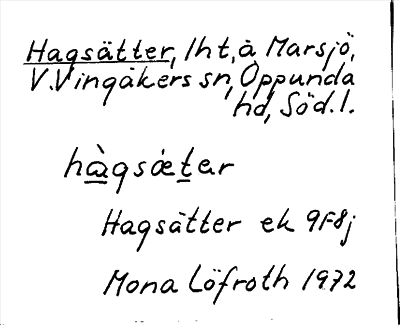 Hagsätter, lht, å Marsjö,
V. Vingåkers sn, Oppunda
hd, Söd. l.
hàgsǽtar
Hagsätter ek 9F8j
Mona Löfroth 1972